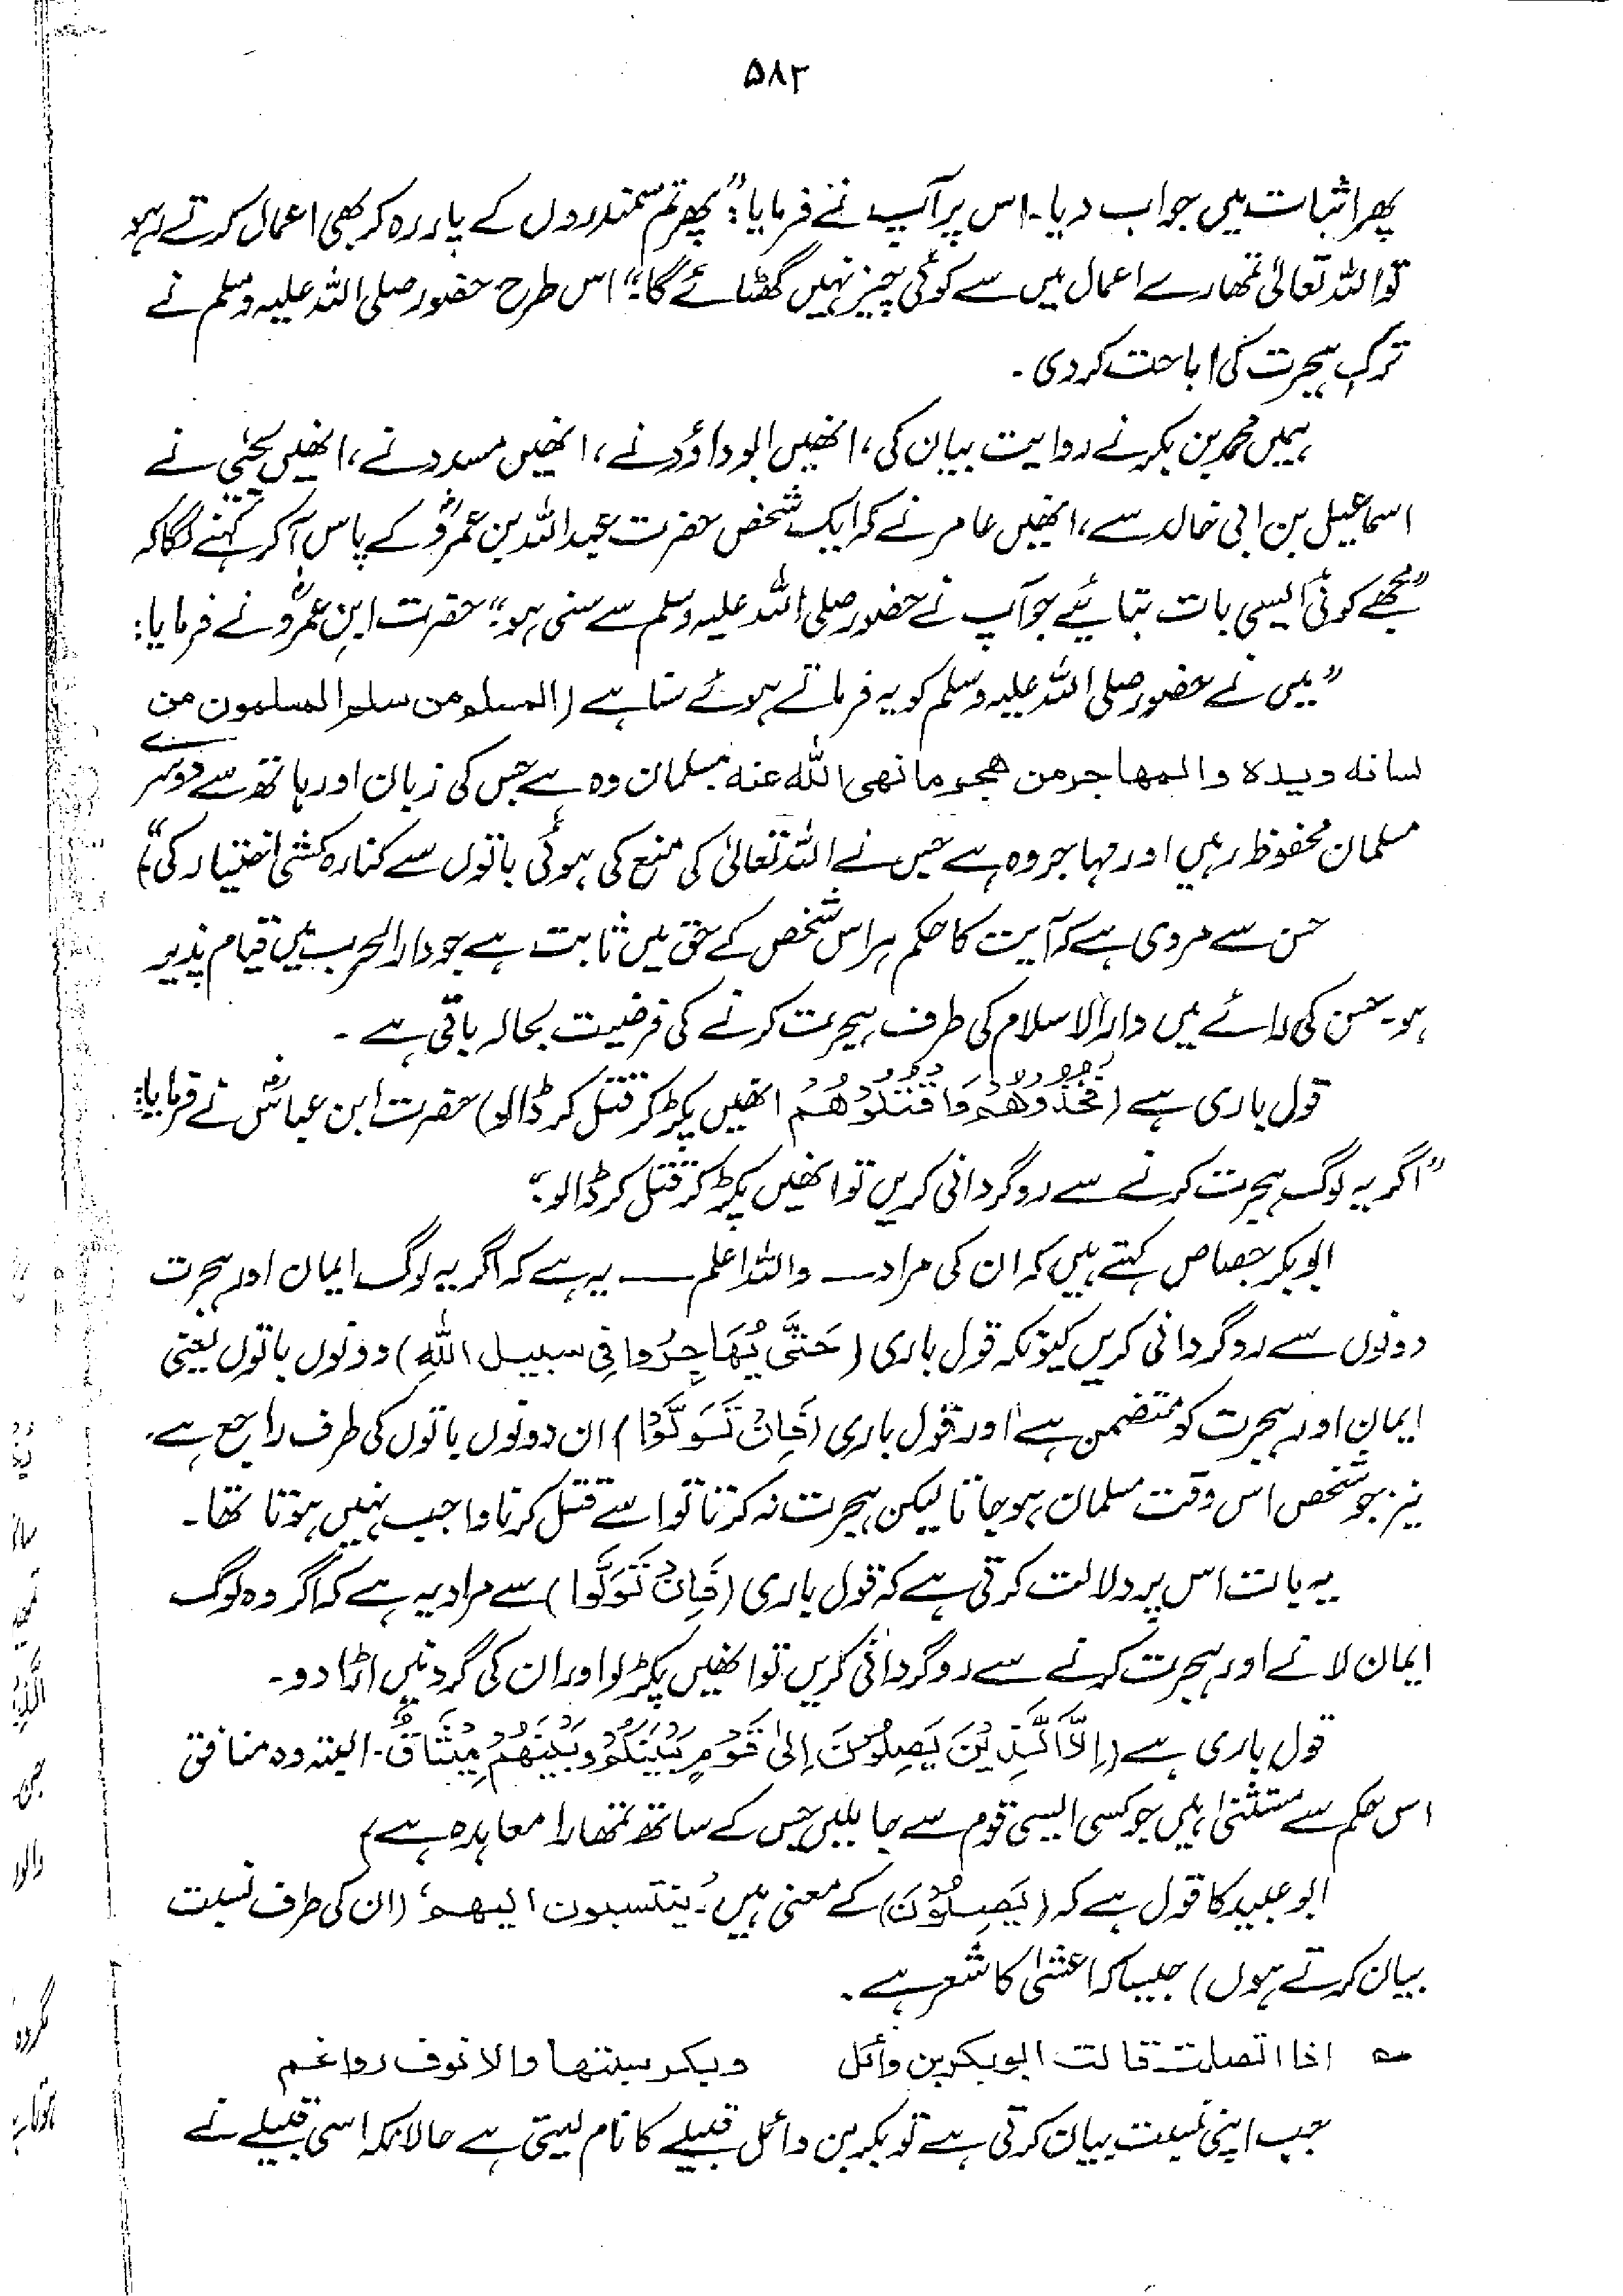 ۵۸۳
پھر اثبات میں جواب دیا۔ اس پر آپ نے فرمایا: "پھر تم سمندروں کے پار رہ کر بھی اعمال کرتے رہو
تو اللہ تعالیٰ تمھارے اعمال میں سے کوئی چیز نہیں گھٹائے گا۔" اس طرح حضور صلی اللہ علیہ وسلم نے
ترک ہجرت کی اباحت کر دی۔
ہمیں محمد بن بکر نے روایت بیان کی، انھیں ابو داؤد نے، انھیں مسدد نے، انھیں یحییٰ نے
اسماعیل بن ابی خالد سے، انھیں عامر نے کہ ایک شخص حضرت عبداللہ بن عمروؓ کے پاس آ کر کہنے لگا کہ
"مجھے کوئی ایسی بات بتائیے جو آپ نے حضور صلی اللہ علیہ وسلم سے سنی ہو۔" حضرت ابن عمروؓ نے فرمایا:
"میں نے حضور صلی اللہ علیہ وسلم کو یہ فرماتے ہوئے سنا ہے (المسلم من سلم المسلمون من
لسانه ويده والمهاجر من هجر ما نهى الله عنه مسلمان وہ ہے جس کی زبان اور ہاتھ سے دوسرے
مسلمان محفوظ رہیں اور مہاجر وہ ہے جس نے اللہ تعالیٰ کی منع کی ہوئی باتوں سے کنارہ کشی اختیار کی)"
حسن سے مروی ہے کہ آیت کا حکم ہر اس شخص کے حق میں ثابت ہے جو دارالحرب میں قیام پذیر
ہو۔ حسن کی رائے میں دارالاسلام کی طرف ہجرت کرنے کی فرضیت بحالہ باقی ہے۔
قول باری ہے (فَخُذُوْهُمْ وَاقْتُلُوْهُمْ انھیں پکڑ کر قتل کر ڈالو) حضرت ابن عباسؓ نے فرمایا:
"اگر یہ لوگ ہجرت کرنے سے روگردانی کریں تو انھیں پکڑ کر قتل کر ڈالو۔"
ابو بکر جصاص کہتے ہیں کہ ان کی مراد — واللہ اعلم — یہ ہے کہ اگر یہ لوگ ایمان اور ہجرت
دونوں سے روگردانی کریں کیونکہ قول باری (حَتّٰى يُهَاجِرُوا فِي سبيل اللهِ) دونوں باتوں یعنی
ایمان اور ہجرت کو متضمن ہے اور قول باری (فَاِنْ تَوَلَّوْا) ان دونوں باتوں کی طرف راجع ہے۔
نیز جو شخص اس وقت مسلمان ہو جاتا لیکن ہجرت نہ کرتا تو اسے قتل کرنا واجب نہیں ہوتا تھا۔
یہ بات اس پر دلالت کرتی ہے کہ قول باری (فَاِنْ تَوَلَّوا) سے مراد یہ ہے کہ اگر وہ لوگ
ایمان لانے اور ہجرت کرنے سے روگردانی کریں تو انھیں پکڑ لو اور ان کی گردنیں اڑا دو۔
قول باری ہے (اِلَّا الَّذِيْنَ يَصِلُوْنَ اِلٰى قَوْمٍ بَيْنَكُمْ وَبَيْنَهُمْ مِيْثَاقٌ۔ البتہ وہ منافق
اس حکم سے مستثنیٰ ہیں جو کسی ایسی قوم سے جا ملیں جس کے ساتھ تمھارا معاہدہ ہے)
ابو عبید کا قول ہے کہ (يَصِلُوْنَ) کے معنی ہیں۔ 'ينتسبون اليهم' (ان کی طرف نسبت
بیان کرتے ہوں) جیسا کہ اعشیٰ کا شعر ہے۔
؎ اذا اتصلت قالت ابوبكر بن وائل وبكر سبتها والانوف رواغم
جب اپنی نسبت بیان کرتی ہے تو بکر بن وائل قبیلے کا نام لیتی ہے حالانکہ اسی قبیلے نے